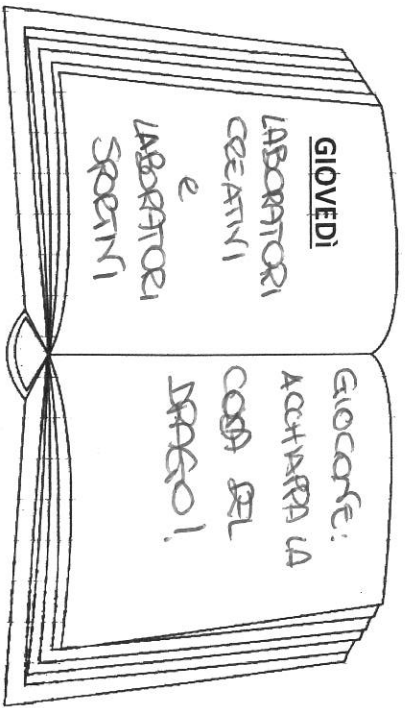 GIOVEDì
LABORATORI
CREATIVI
e
LABORATORI
SPORTIVI
GIOCONE:
ACCHIAPPA LA
CODA DEL
DRAGO!